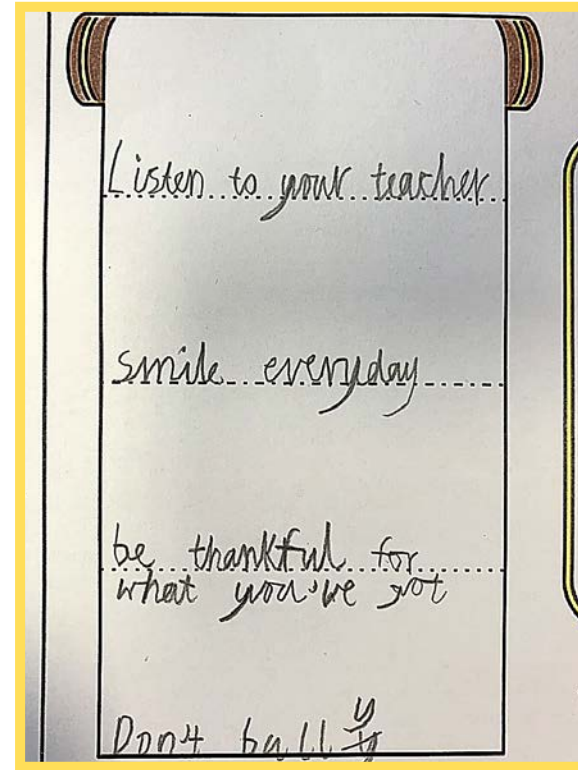 Listen to your teacher
smile everyday
be thankful for
what you've got
Don't bully